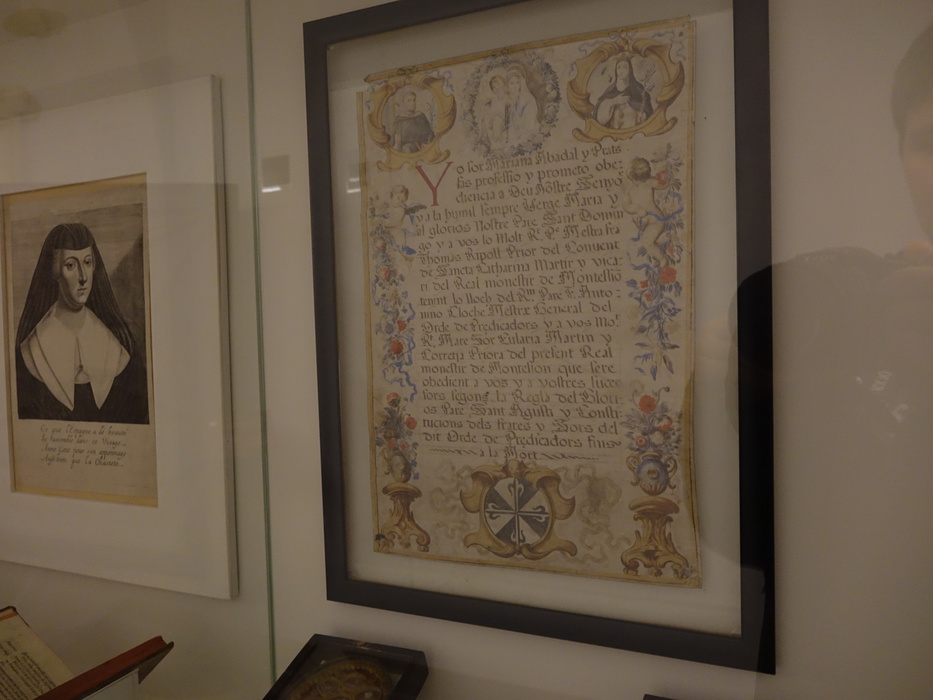 Yo sor Mariana Abadal y Prats
fas professio y prometo obe-
diencia a Deu Nostre Senyor
y a la humil sempre Verge Maria y
al glorios Nostre Pare Sant Domin
go y a vos lo Molt Rt. Pe. Mestra fra
Thomas Ripoll Prior del Convent
de Sancta Catharina Martir y vica-
ri del Real monestir de Montesio
tenint lo lloch del Rm. Pare F. Anto-
nino Cloche Mestre General del
Orde de Predicadors y a vos Mot.
Rt. Mare Sor Eularia Martin y
Correja Priora del present Real
monestir de Montesion que sere
obedient a vos y a vostres succe
sors segons la Regla del Glori-
os Pare Sant Agusti y Consti-
tucions dels frares y Sors del
dit Orde de Predicadors fins
a la Mort